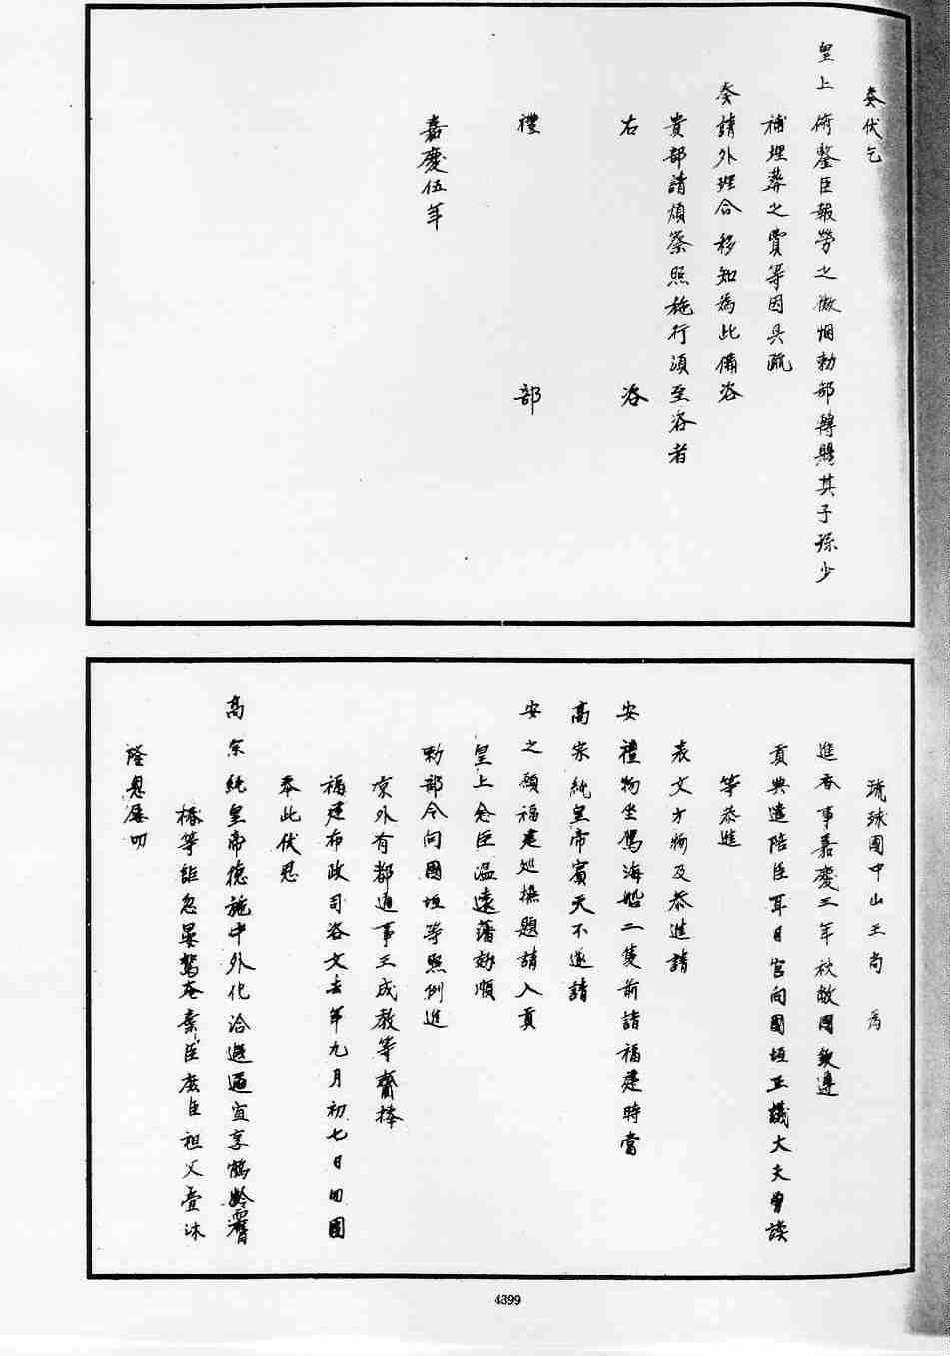 奏伏乞
皇上俯鑒臣報勞之微悃勅部轉賜其子孫少
補埋葬之費等因具疏
奏請外理合移知為此備咨
貴部請煩察照施行須至咨者
右咨
禮部
嘉慶伍年
琉球國中山王尚 為
進香事嘉慶三年秋敝國欽遵
貢典遣陪臣耳目官向國垣正議大夫曾謨
等恭進
表文方物及恭進請
安禮物坐駕海船二隻前詣福建時當
高宗純皇帝賓天不遂請
安之願福建巡撫題請入貢
皇上念臣温遠藩効順
勅部令向國垣等照例進
京外有都通事王成教等齎捧
福建布政司咨文去年九月初七日回國
奉此伏思
高宗純皇帝德施中外化洽遐邇宜享鶴齡
椿等詎忽晏駕奄棄臣庶臣祖父疊沐
隆恩屢叨
4399